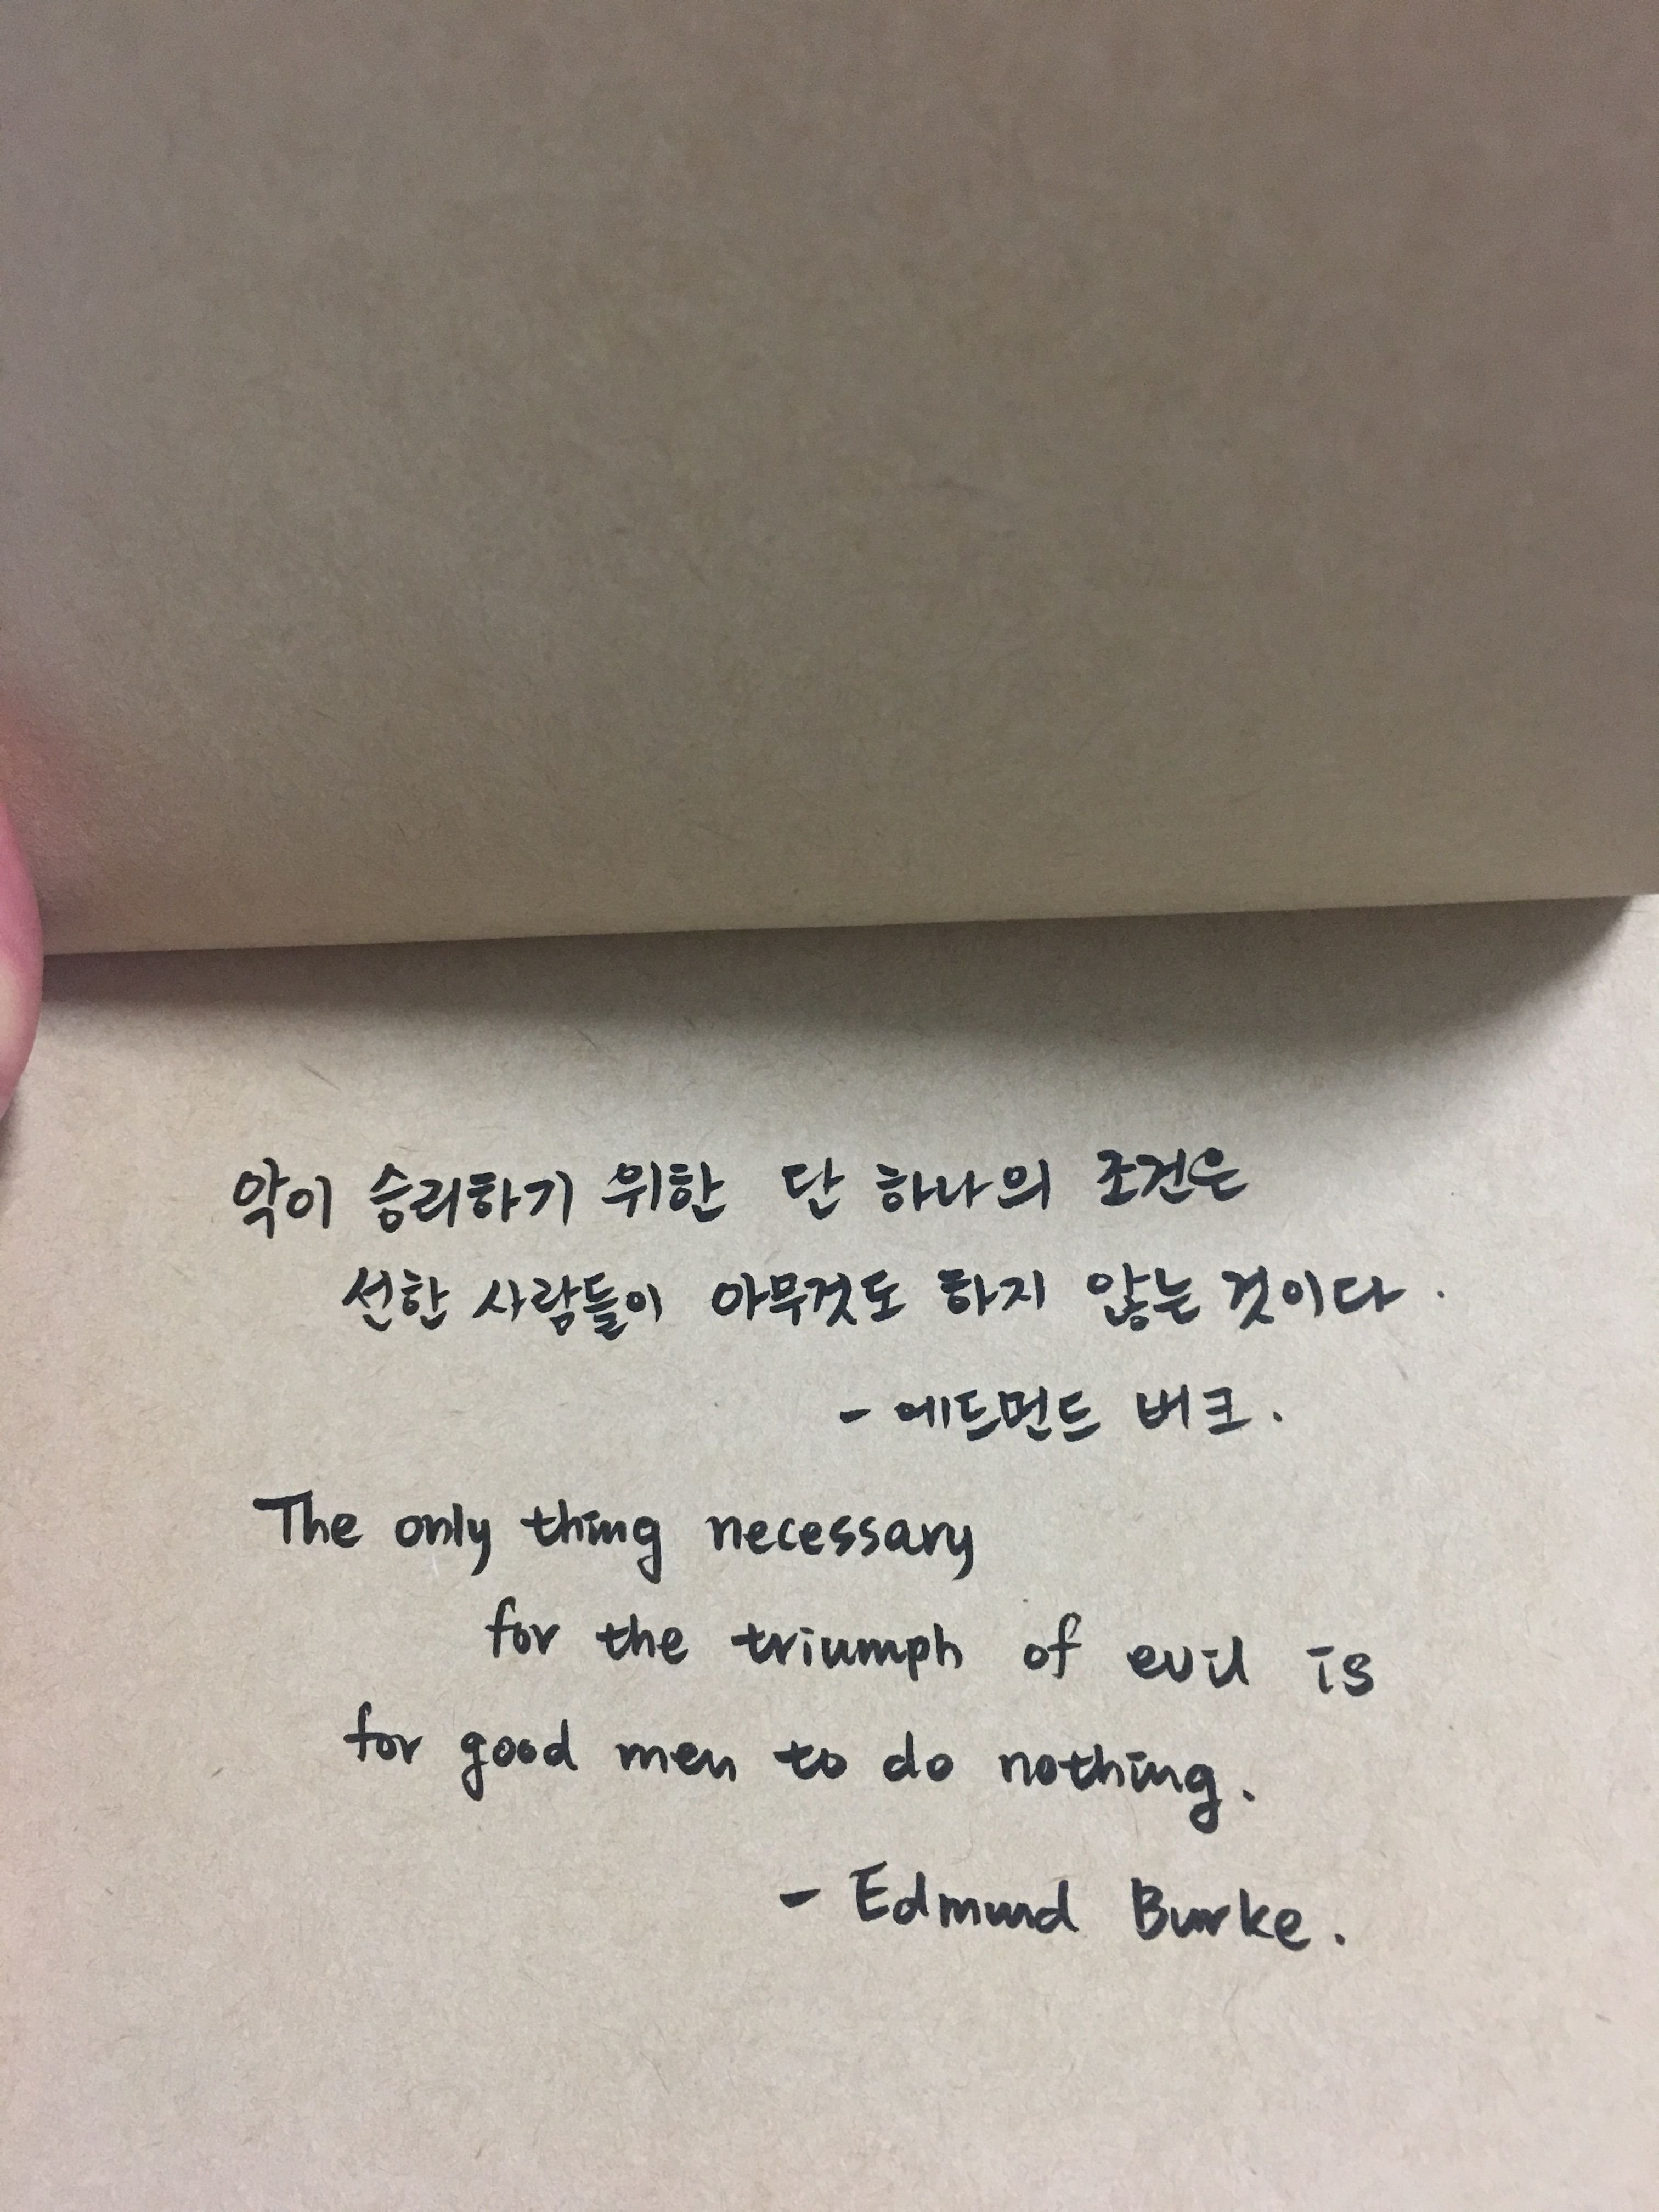 악이 승리하기 위한 단 하나의 조건은
선한 사람들이 아무것도 하지 않는 것이다.
- 에드먼드 버크.
The only thing necessary
for the triumph of evil is
for good men to do nothing.
- Edmund Burke.